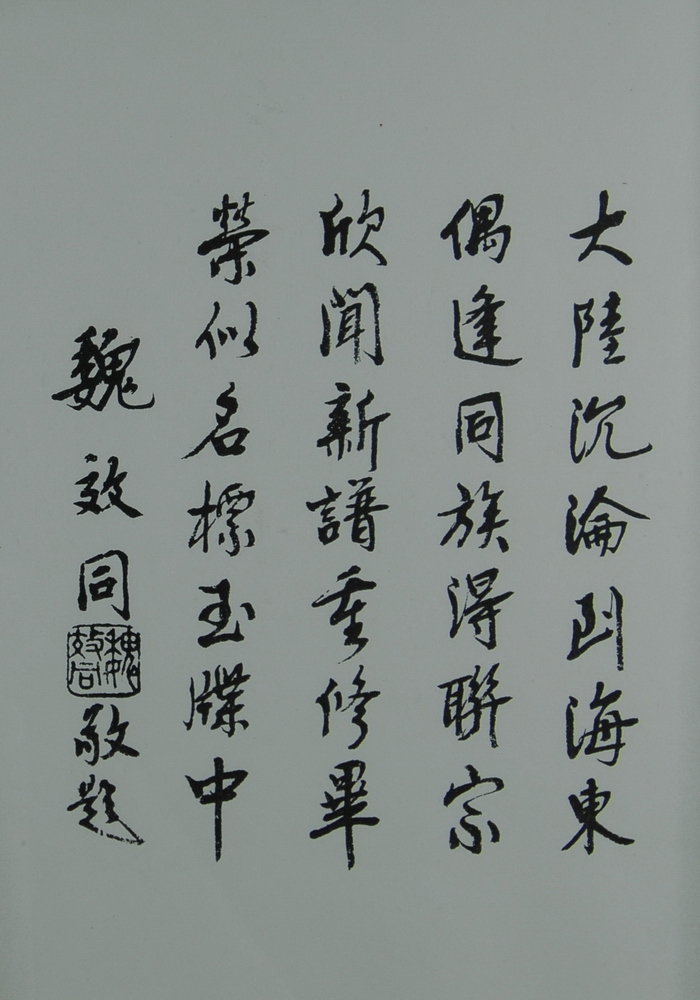 大陸沉淪到海東
偶逢同族得聯宗
欣聞新譜重修畢
榮似名標玉牒中
魏效同敬題
魏效同